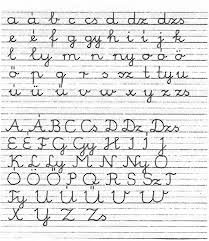 a á b c cs d dz dzs
e é f g gy h i í j k
l ly m n ny o ó ö
ő p q r s sz t ty u
ú ü ű v w x y z zs
A Á B C Cs D Dz Dzs
E É F G Gy H I Í J
K L Ly M N Ny O
Ó Ö Ő P Q R S Sz T
Ty U Ú Ü Ű V W
X Y Z Zs